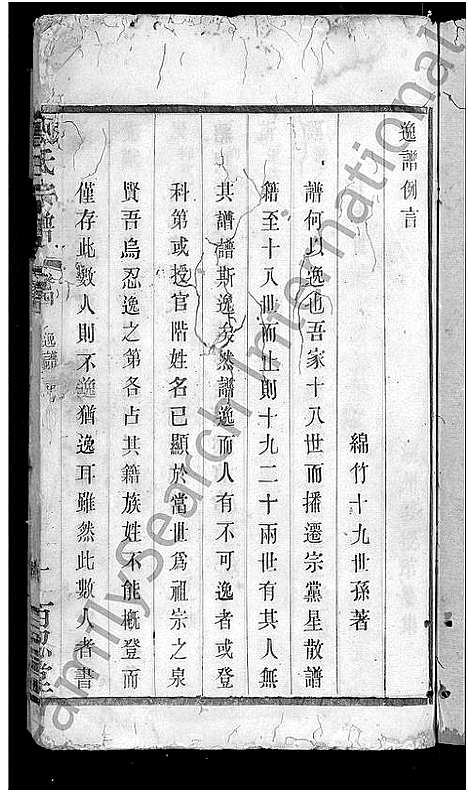 逸譜例言
綿竹十九世孫著
譜何以逸也吾家十八世而播遷宗黨星散譜
籍至十八世而止則十九二十兩世有其人無
其譜譜斯逸矣然譜逸而人有不可逸者或登
科第或授官階姓名已顯於當世爲祖宗之泉
賢吾烏忍逸之第各占其籍族姓不能概登而
僅存此數人則不逸猶逸耳雖然此數人者書
氏宗譜
逸譜
一
堂
FamilySearch International